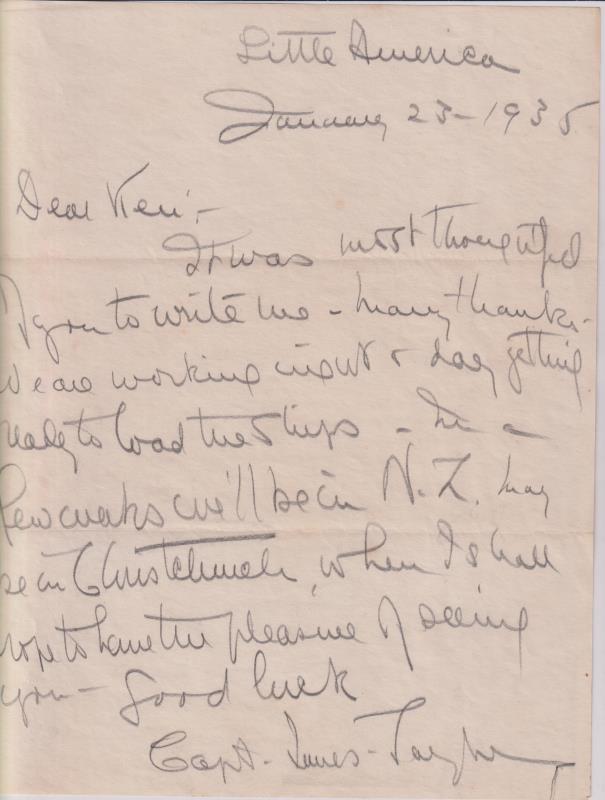 Little America
January 23 - 1935
Dear Ken:-
It was most thoughtful
of you to write me - many thanks -
We are working night & day getting
ready to load the ships - In a
few weaks we'll be in N. Z. may
be in Christchurch, when I shall
hope to have the pleasure of seeing
you - Good luck
Capt. Innes-Taylor